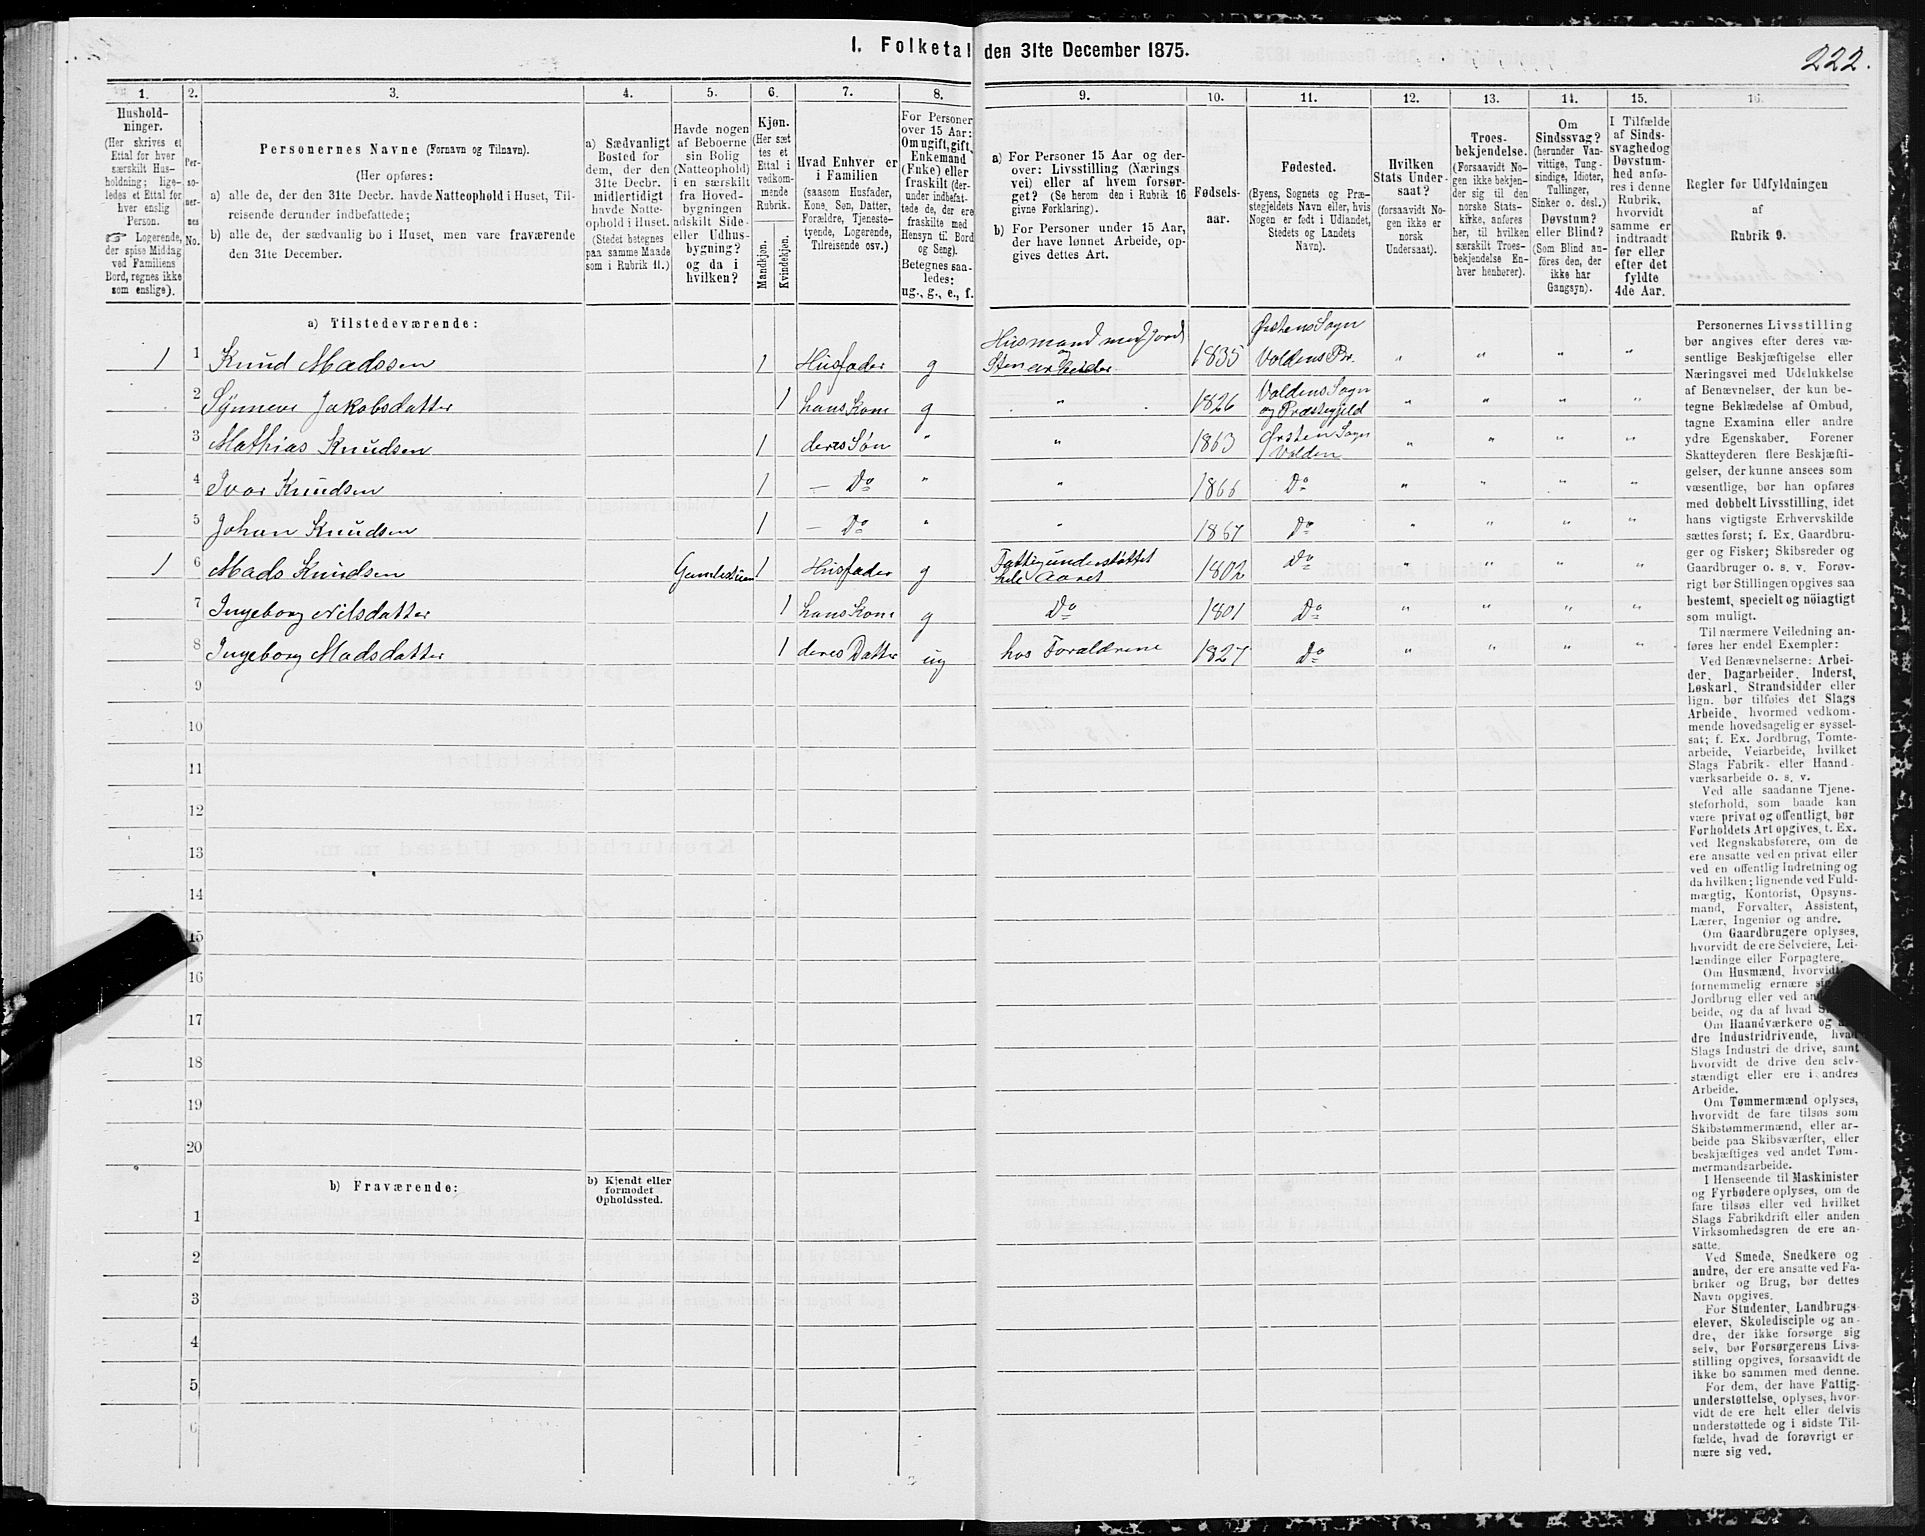 I. Folketal den 31te December 1875.
222.
1.
Hushold-
ninger.
(Her skrives et
Ettal for hver
særskilt Hus-
holdning; lige-
ledes et Ettal for
hver enslig
Person.
☞ Logerende,
der spise Middag
ved Familiens
Bord, regnes ikke
som enslige).
2.
Per-
so-
ner-
nes
No.
3.
Personernes Navne (Fornavn og Tilnavn).
(Her opføres:
a) alle de, der den 31te Decbr. havde Natteophold i Huset, Til-
reisende derunder indbefattede;
b) alle de, der sædvanlig bo i Huset, men vare fraværende
den 31te December.
4.
a) Sædvanligt
Bosted for
dem, der den
31te Decbr.
midlertidigt
havde Natte-
ophold i Huset.
(Stedet betegnes
paa samme Maade
som i Rubrik 11.)
5.
Havde nogen
af Beboerne
sin Bolig
(Natteophold)
i en særskilt
fra Hoved-
bygningen
adskilt Side-
eller Udhus-
bygning?
og da i
hvilken?
6.
Kjøn.
(Her sæt-
tes et
Ettal i
vedkom-
mende
Rubrik.
Mandkjøn.
Kvindekjøn.
7.
Hvad Enhver er
i Familien
(saasom Husfader,
Kone, Søn, Datter,
Forældre, Tjeneste-
tyende, Logerende,
Tilreisende osv.)
8.
For Personer
over 15 Aar:
Om ugift, gift,
Enkemand
(Enke) eller
fraskilt (der-
under indbefat-
tede de, der ere
fraskilte med
Hensyn til Bord
og Seng).
Betegnes saa-
ledes:
ug., g., e., f.
9.
a) For Personer 15 Aar og der-
over: Livsstilling (Nærings
vei) eller af hvem forsør-
get? (Se herom den i Rubrik 16
givne Forklaring).
b) For Personer under 15 Aar,
der have lønnet Arbeide, op-
gives dettes Art.
10.
Fødsels-
aar.
11.
Fødested.
(Byens, Sognets og Præ-
stegjeldets Navn eller, hvis
Nogen er født i Udlandet,
Stedets og Landets
Navn).
12.
Hvilken
Stats Under-
saat?
(forsaavidt No-
gen ikke er
norsk
Undersaat).
13.
Troes-
bekjendelse.
(Forsaavidt No-
gen ikke bekjen-
der sig til den
norske Stats-
kirke, anføres
her, til hvilken
særskilt Troes-
bekjendelse En-
hver henhører).
14.
Om
Sindssvag?
(herunder Van-
vittige, Tung-
sindige, Idioter,
Tullinger,
Sinker o. desl.)
Døvstum?
eller Blind?
(Som Blind an-
føres den, der
ikke har
Gangsyn).
15.
I Tilfælde
af Sinds-
svaghed og
Døvstum-
hed anfø-
res i denne
Rubrik,
hvorvidt
samme er
indtraadt
før eller
efter det
fyldte
4de Aar.
16.
Regler før Udfyldningen
af
Rubrik 9.
a) Tilstedeværende:
1 1 Knud Madssen 1 Husfader g Husmand med Jord og Stenarbeider 1835 Ørstens Sogn Voldens Pr. " " " "
2 Synneve Jakobsdatter 1 hans Kone g " 1826 Voldens Sogn og Præstegjeld " " " "
3 Mathias Knudsen 1 deres Søn " " 1863 Ørsten Sogn Volden " " " "
4 Ivar Knudsen 1 – Do " " 1866 Do " " " "
5 Johan Knudsen 1 – Do " " 1867 Do " " " "
1 6 Mads Knudsen 1 Husfader g Fattigunderstøttet hele Aaret 1802 Do " " " "
7 Ingeborg Nilsdatter 1 hans Kone g Do 1801 Do " " " "
8 Ingeborg Madsdatter 1 deres Datter ug hos Forældrene 1827 Do " " " "
9
10
11
12
13
14
15
16
17
18
19
20
b) Fraværende:
b) Kjendt eller
formodet
Opholdssted.
1
2
3
4
5
6
Personernes Livsstilling
bør angives efter deres væ-
sentlige Beskjæftigelse eller
Næringsvei med Udelukkelse
af Benævnelser, der kun be-
tegne Beklædelse af Ombud,
tagne Examina eller andre
ydre Egenskaber. Forener
Skatteyderen flere Beskjæfti-
gelser, der kunne ansees som
væsentlige, bør han opføres
med dobbelt Livsstilling, idet
hans vigtigste Erhvervskilde
sættes først; f. Ex. Gaardbru-
ger og Fisker; Skibsreder og
Gaardbruger o. s. v. Forøv-
rigt bør Stillingen opgives saa
bestemt, specielt og nöiagtigt
som muligt.
Til nærmere Veiledning an-
føres her endel Exempler:
Ved Benævnelserne: Arbei-
der, Dagarbeider, Inderst,
Løskarl, Strandsidder eller
lign. bør tilføies det Slags
Arbeide, hvormed vedkom-
mende hovedsagelig er syssel-
sat; f. Ex. Jordbrug, Tomte-
arbeide, Veiarbeide, hvilket
Slags Fabrik- eller Haand-
værksarbeide o. s. v.
Ved alle saadanne Tjene-
steforhold, som baade kan
være privat og offentligt, bør
Forholdets Art opgives, t. Ex.
ved Regnskabsførere, om de
ere ansatte ved en privat eller
ved en offentlig Indretning og
da hvilken; lignende ved Fuld-
mægtig, Kontorist, Opsyns-
mand, Forvalter, Assistent,
Lærer, Ingeniør og andre.
Om Gaardbrugere oplyses,
hvorvidt de ere Selveiere, Lei-
lændinge eller Forpagtere.
Om Husmænd, hvorvidt
fornemmelig ernære
Jordbrug eller ved
beide, og da af hvad
Om Haandværkere og
dre Industridrivende, hvad
Slags Industri de drive, samt
hvorvidt de drive den selv-
stændigt eller ere i andres
Arbeide.
Om Tømmermænd oplyses,
hvorvidt de fare tilsøs som
Skibstømmermænd, eller ar-
beide paa Skibsværfter, eller
beskjæftiges ved andet Tøm-
mermandsarbeide.
I Henseende til Maskinister
og Fyrbødere oplyses, om de
fare tilsøs eller ved hvilket
Slags Fabrikdrift eller anden
Virksomhedsgren de ere an-
satte.
Ved Smede, Snedkere og
andre, der ere ansatte ved Fa-
briker og Brug, bør dettes
Navn opgives.
For Studenter, Landbrugs-
elever, Skoledisciple og an-
dre, der ikke forsørge sig
selv, bør Forsørgerens Livs-
stilling opgives, forsaavidt de
ikke bo sammen med denne.
For dem, der have Fattig-
understøttelse, oplyses, hvor-
vidt de ere helt eller delvis
understøttede og i sidste Til-
fælde, hvad de forøvrigt er-
nære sig ved.